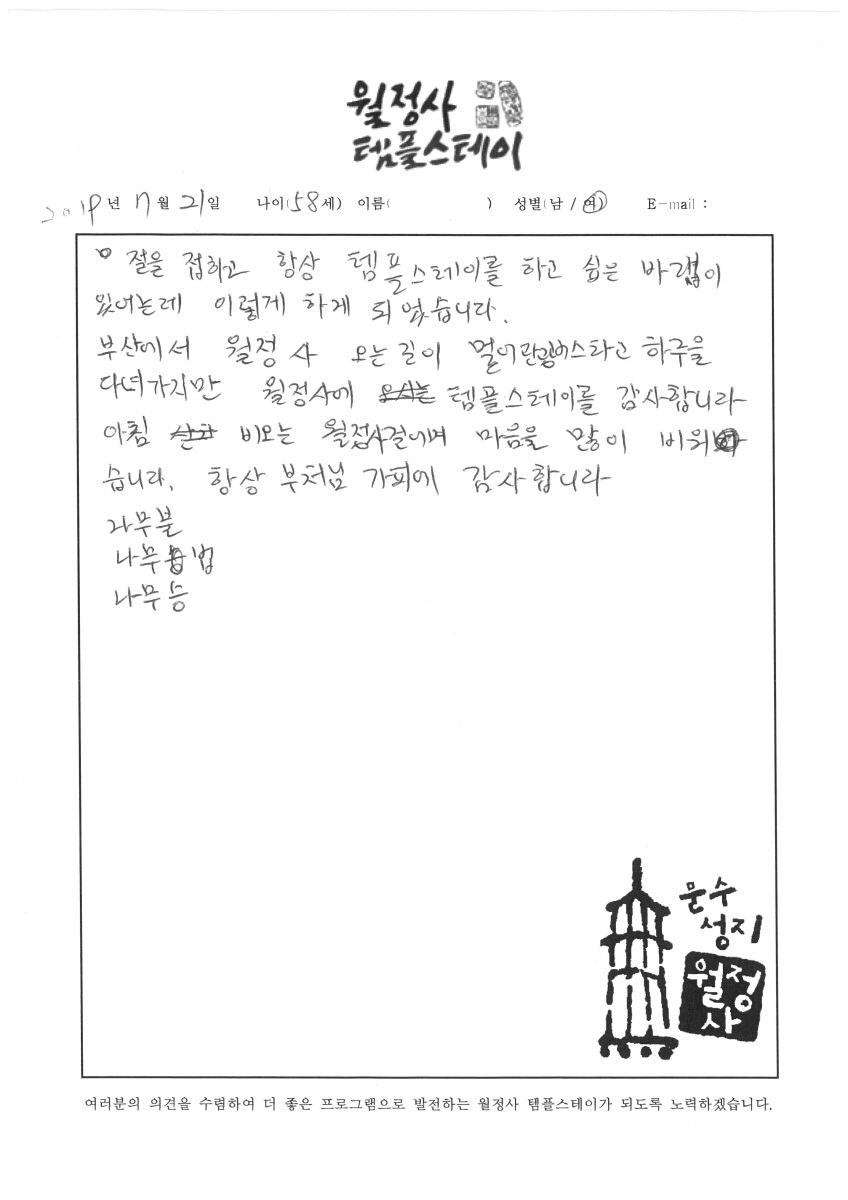 월정사
템플스테이
2019년 7월 21일 나이(58세) 이름( ) 성별(남 / 여) E-mail :
절을 접하고 항상 템플스테이를 하고 싶은 바램이
있어는데 이렇게 하게 되었습니다.
부산에서 월정사 오는 길이 멀어 관광버스 타고 하주을
다녀가지만 월정사에 템플스테이를 감사합니다
아침 비오는 월정사 걸으며 마음을 많이 비워
습니다. 항상 부처님 가피에 감사합니다
나무불
나무법
나무승
문수
성지
월정
사
여러분의 의견을 수렴하여 더 좋은 프로그램으로 발전하는 월정사 템플스테이가 되도록 노력하겠습니다.